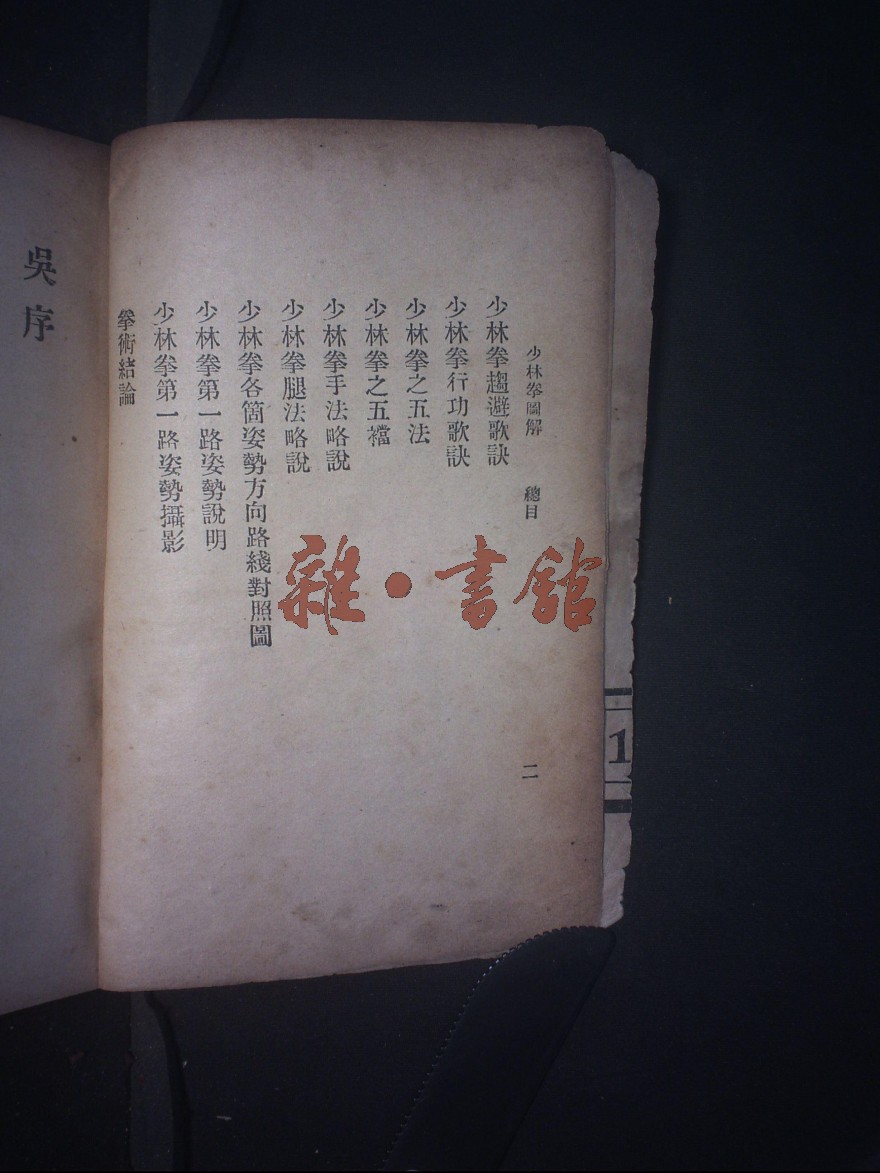 少林拳圖解 總目
二
少林拳趨避歌訣
少林拳行功歌訣
少林拳之五法
少林拳之五襠
少林拳手法略說
少林拳腿法略說
少林拳各箇姿勢方向路綫對照圖
少林拳第一路姿勢說明
少林拳第一路姿勢攝影
拳術結論
吳序
雜·書館
1